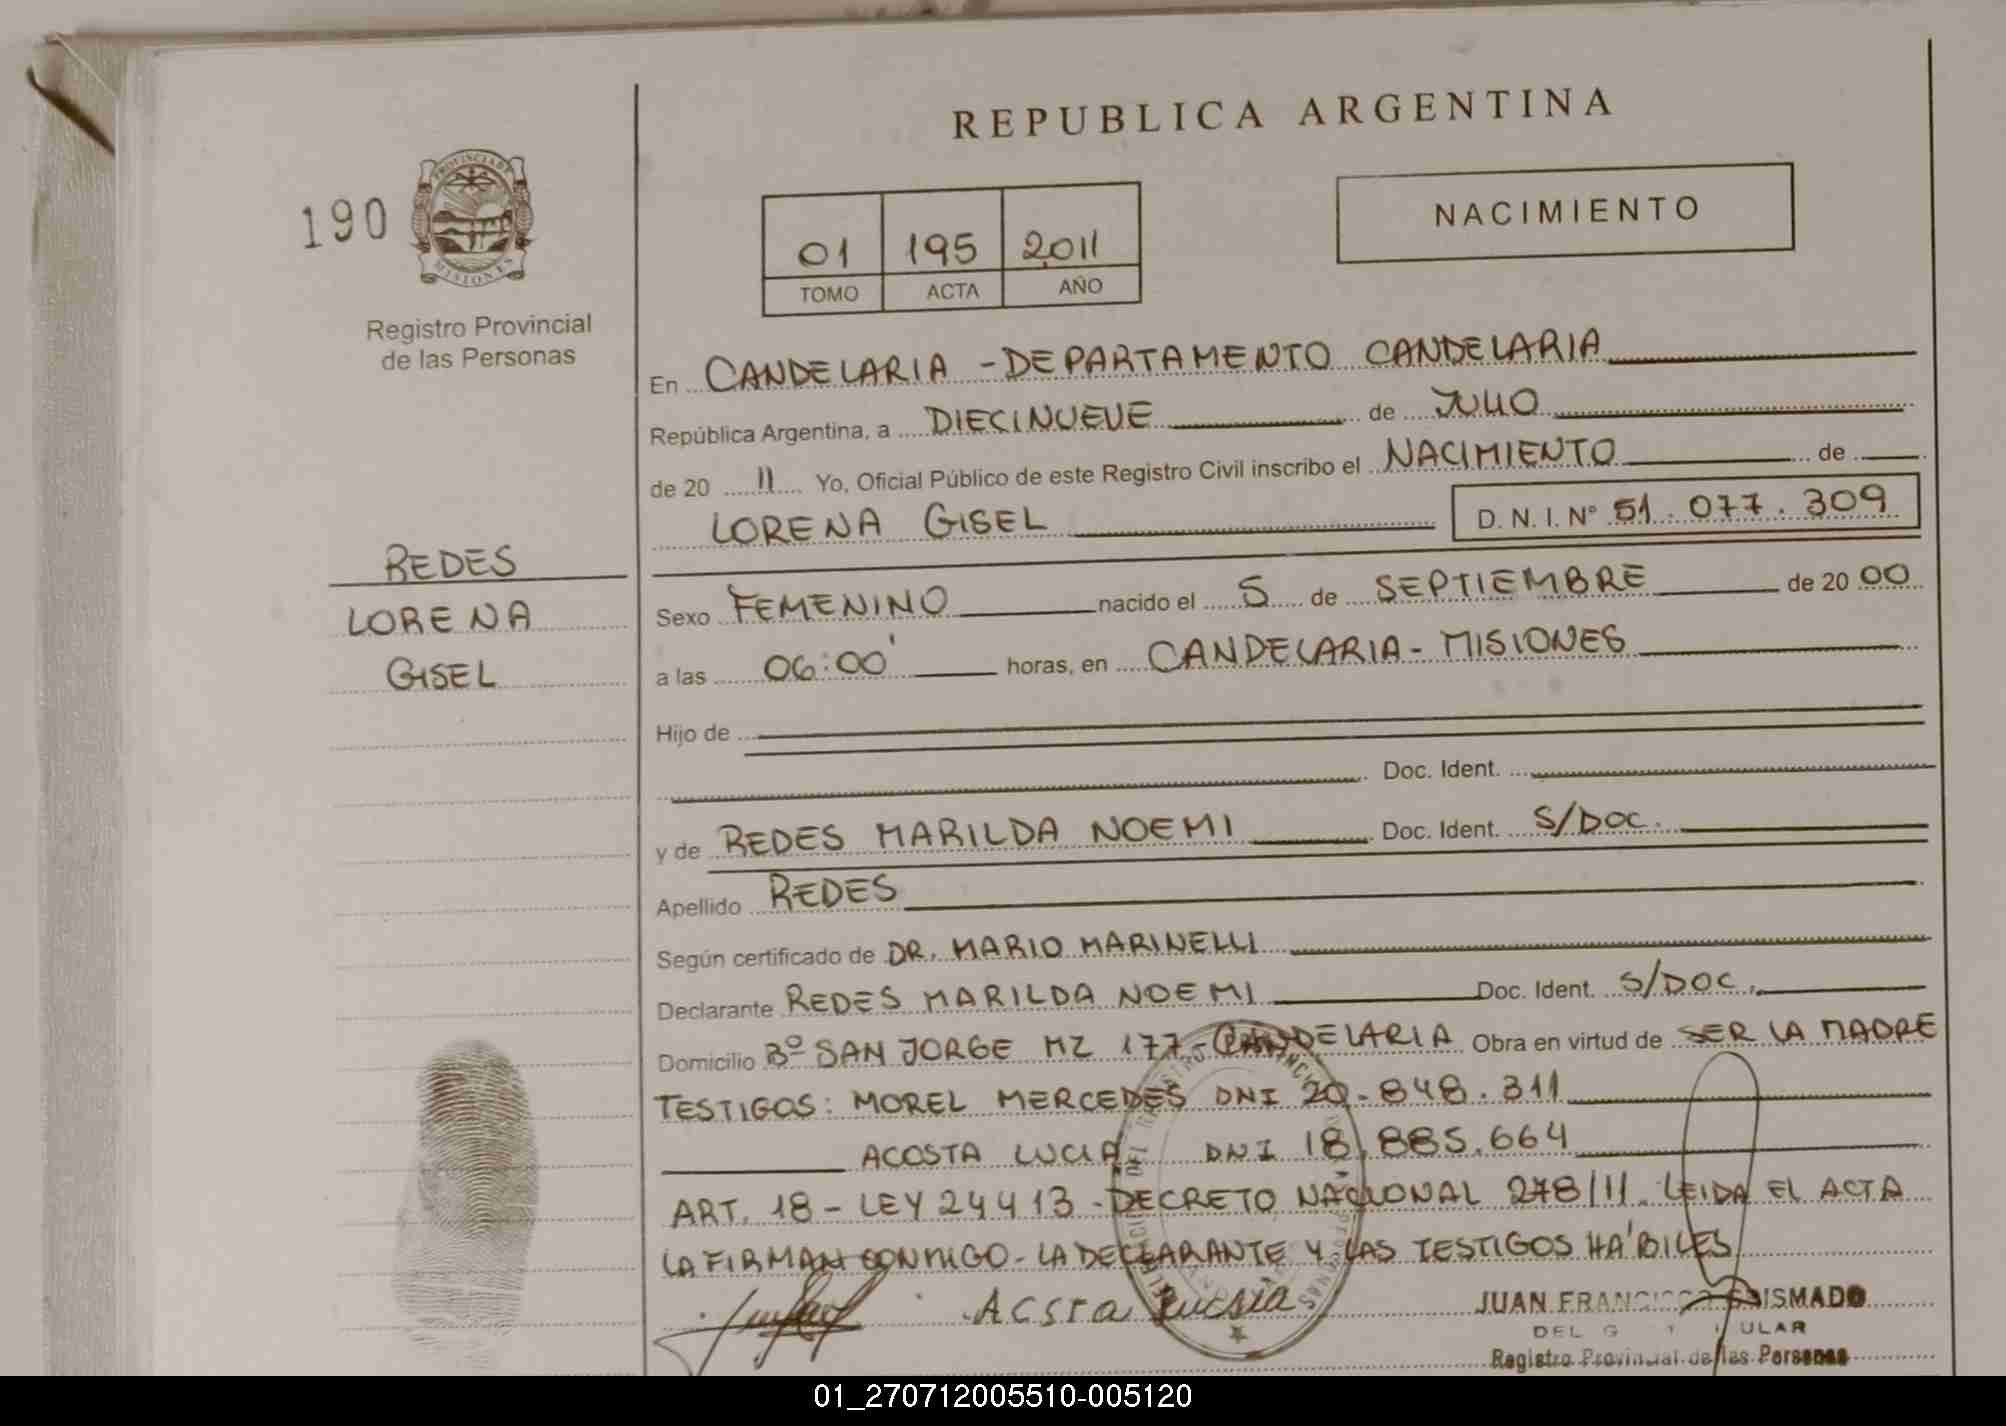 REPUBLICA ARGENTINA
190
PROVINCIA DE
MISIONES
Registro Provincial
de las Personas
01 195 2011
TOMO ACTA AÑO
NACIMIENTO
En CANDELARIA - DEPARTAMENTO CANDELARIA
República Argentina, a DIECINUEVE de JULIO
de 20 11 Yo, Oficial Público de este Registro Civil inscribo el NACIMIENTO de
LORENA GISEL D. N. I. Nº 51.077.309
REDES
LORENA
GISEL
Sexo FEMENINO nacido el 5 de SEPTIEMBRE de 20 00
a las 06:00' horas, en CANDELARIA - MISIONES
Hijo de
Doc. Ident.
y de REDES MARILDA NOEMI Doc. Ident. S/DOC.
Apellido REDES
Según certificado de DR. MARIO MARINELLI
Declarante REDES MARILDA NOEMI Doc. Ident. S/DOC.
Domicilio Bº SAN JORGE MZ 177 - CANDELARIA Obra en virtud de SER LA MADRE
TESTIGOS: MOREL MERCEDES DNI 20.848.311
ACOSTA LUCIA DNI 18.885.664
ART. 18 - LEY 24413 - DECRETO NACIONAL 278/11. LEIDA EL ACTA
LA FIRMAN CONMIGO - LA DECLARANTE Y LAS TESTIGOS HÁBILES
Acsta Lucsia
JUAN FRANCISCO
ULAR
Registro Provincial de las Personas
01_270712005510-005120